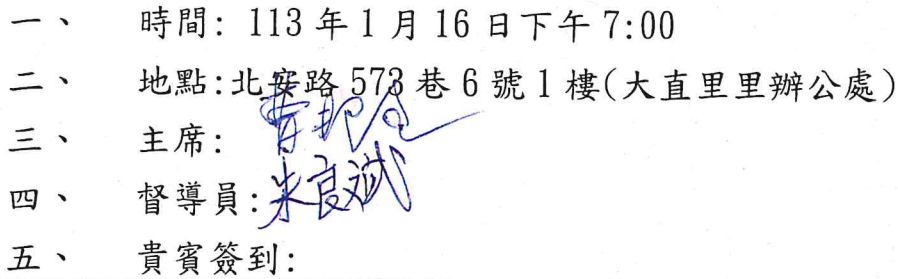 一、 時間: 113年1月16日下午7:00
二、 地點:北安路573巷6號1樓(大直里里辦公處)
三、 主席:
四、 督導員:米良斌
五、 貴賓簽到: